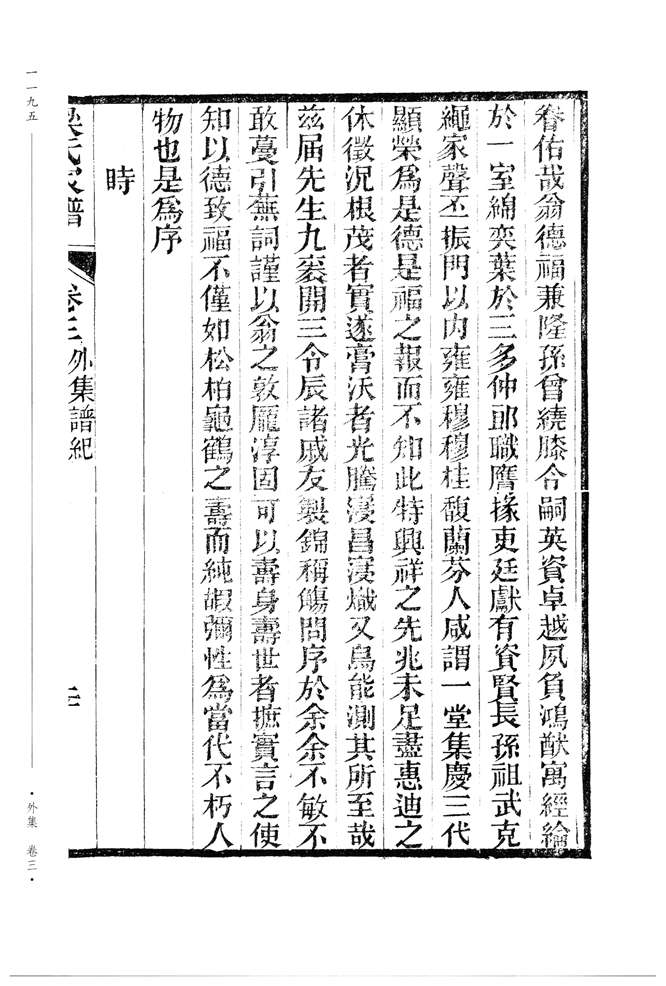 眷佑哉翁德福兼隆孫曾繞膝令嗣英資卓越夙負鴻猷寓經綸
於一室綿奕葉於三多仲郎職膺掾吏廷獻有資賢長孫祖武克
繩家聲丕振門以內雍雍穆穆桂馥蘭芬人咸謂一堂集慶三代
顯榮為是德是福之報而不知此特興祥之先兆未足盡惠迪之
休徵況根茂者實遂膏沃者光騰寖昌寖熾又烏能測其所至哉
茲届先生九袠開三令辰諸戚友製錦稱觴問序於余余不敏不
敢蔓引蕪詞謹以翁之敦龎淳固可以壽身壽世者摭實言之使
知以德致福不僅如松柏龜鶴之壽而純嘏彌性為當代不朽人
物也是為序
時
梁氏家譜 卷三外集譜紀 二十
一一九五
·外集 卷三·